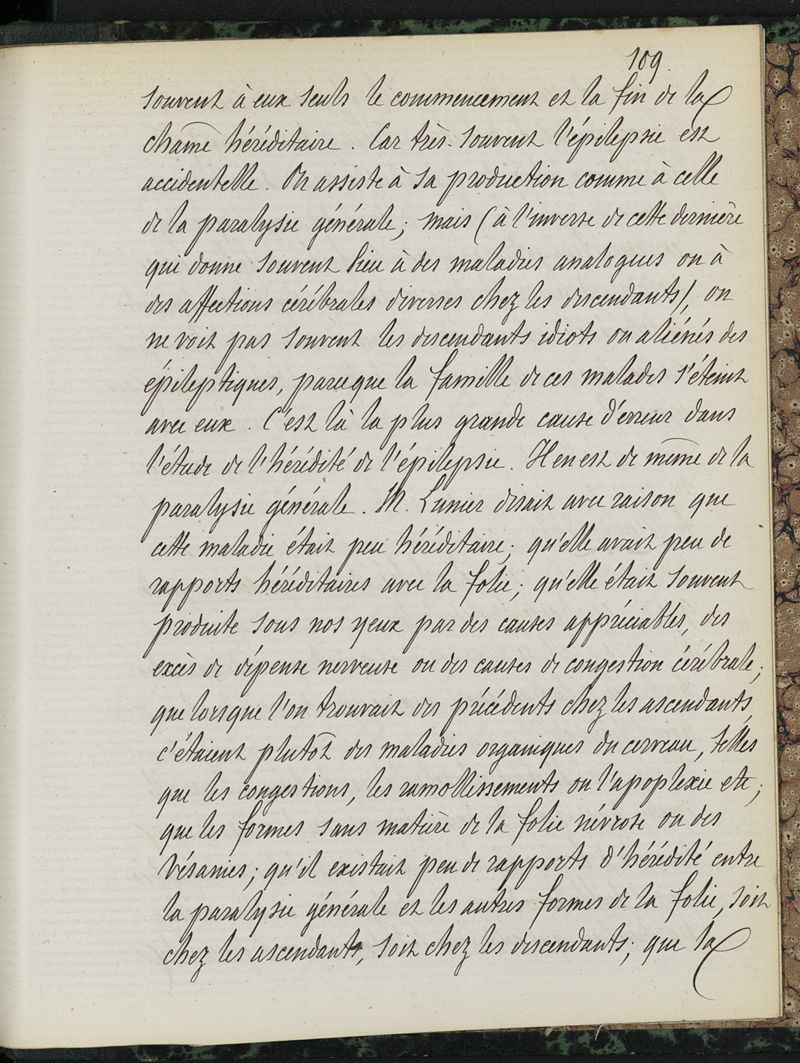 109
souvent à eux seuls le commencement et la fin de la
chaîne héréditaire. Car très-souvent l'épilepsie est
accidentelle. On assiste à sa production comme à celle
de la paralysie générale; mais (à l'inverse de cette dernière
qui donne souvent lieu à des maladies analogues ou à
des affections cérébrales diverses chez les descendants), on
ne voit pas souvent les descendants idiots ou aliénés des
épileptiques, parce que la famille de ces malades s'éteint
avec eux. C'est là la plus grande cause d'erreur dans
l'étude de l'hérédité de l'épilepsie. Il en est de même de la
paralysie générale. M. Lunier disait avec raison que
cette maladie était peu héréditaire; qu'elle avait peu de
rapports héréditaires avec la folie; qu'elle était souvent
produite sous nos yeux par des causes appréciables, des
excès de dépense nerveuse ou des causes de congestion cérébrale;
que lorsque l'on trouvait des précédents chez les ascendants,
c'étaient plutôt des maladies organiques du cerveau, telles
que les congestions, les ramollissements ou l'apoplexie etc;
que les formes sans matière de la folie névrose ou des
vésanies; qu'il existait peu de rapports d'hérédité entre
la paralysie générale et les autres formes de la folie, soit
chez les ascendants, soit chez les descendants; que la